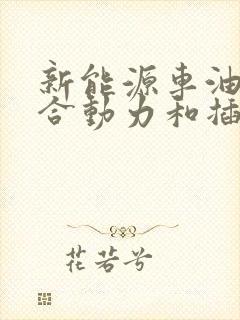 新能源车油
合动力和插
花若兮